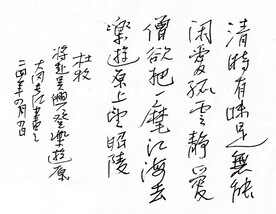 清時有味是無能
闲愛孤雲靜愛
僧欲把一麾江海去
樂遊原上望昭陵
杜牧
將赴吳興登樂遊原